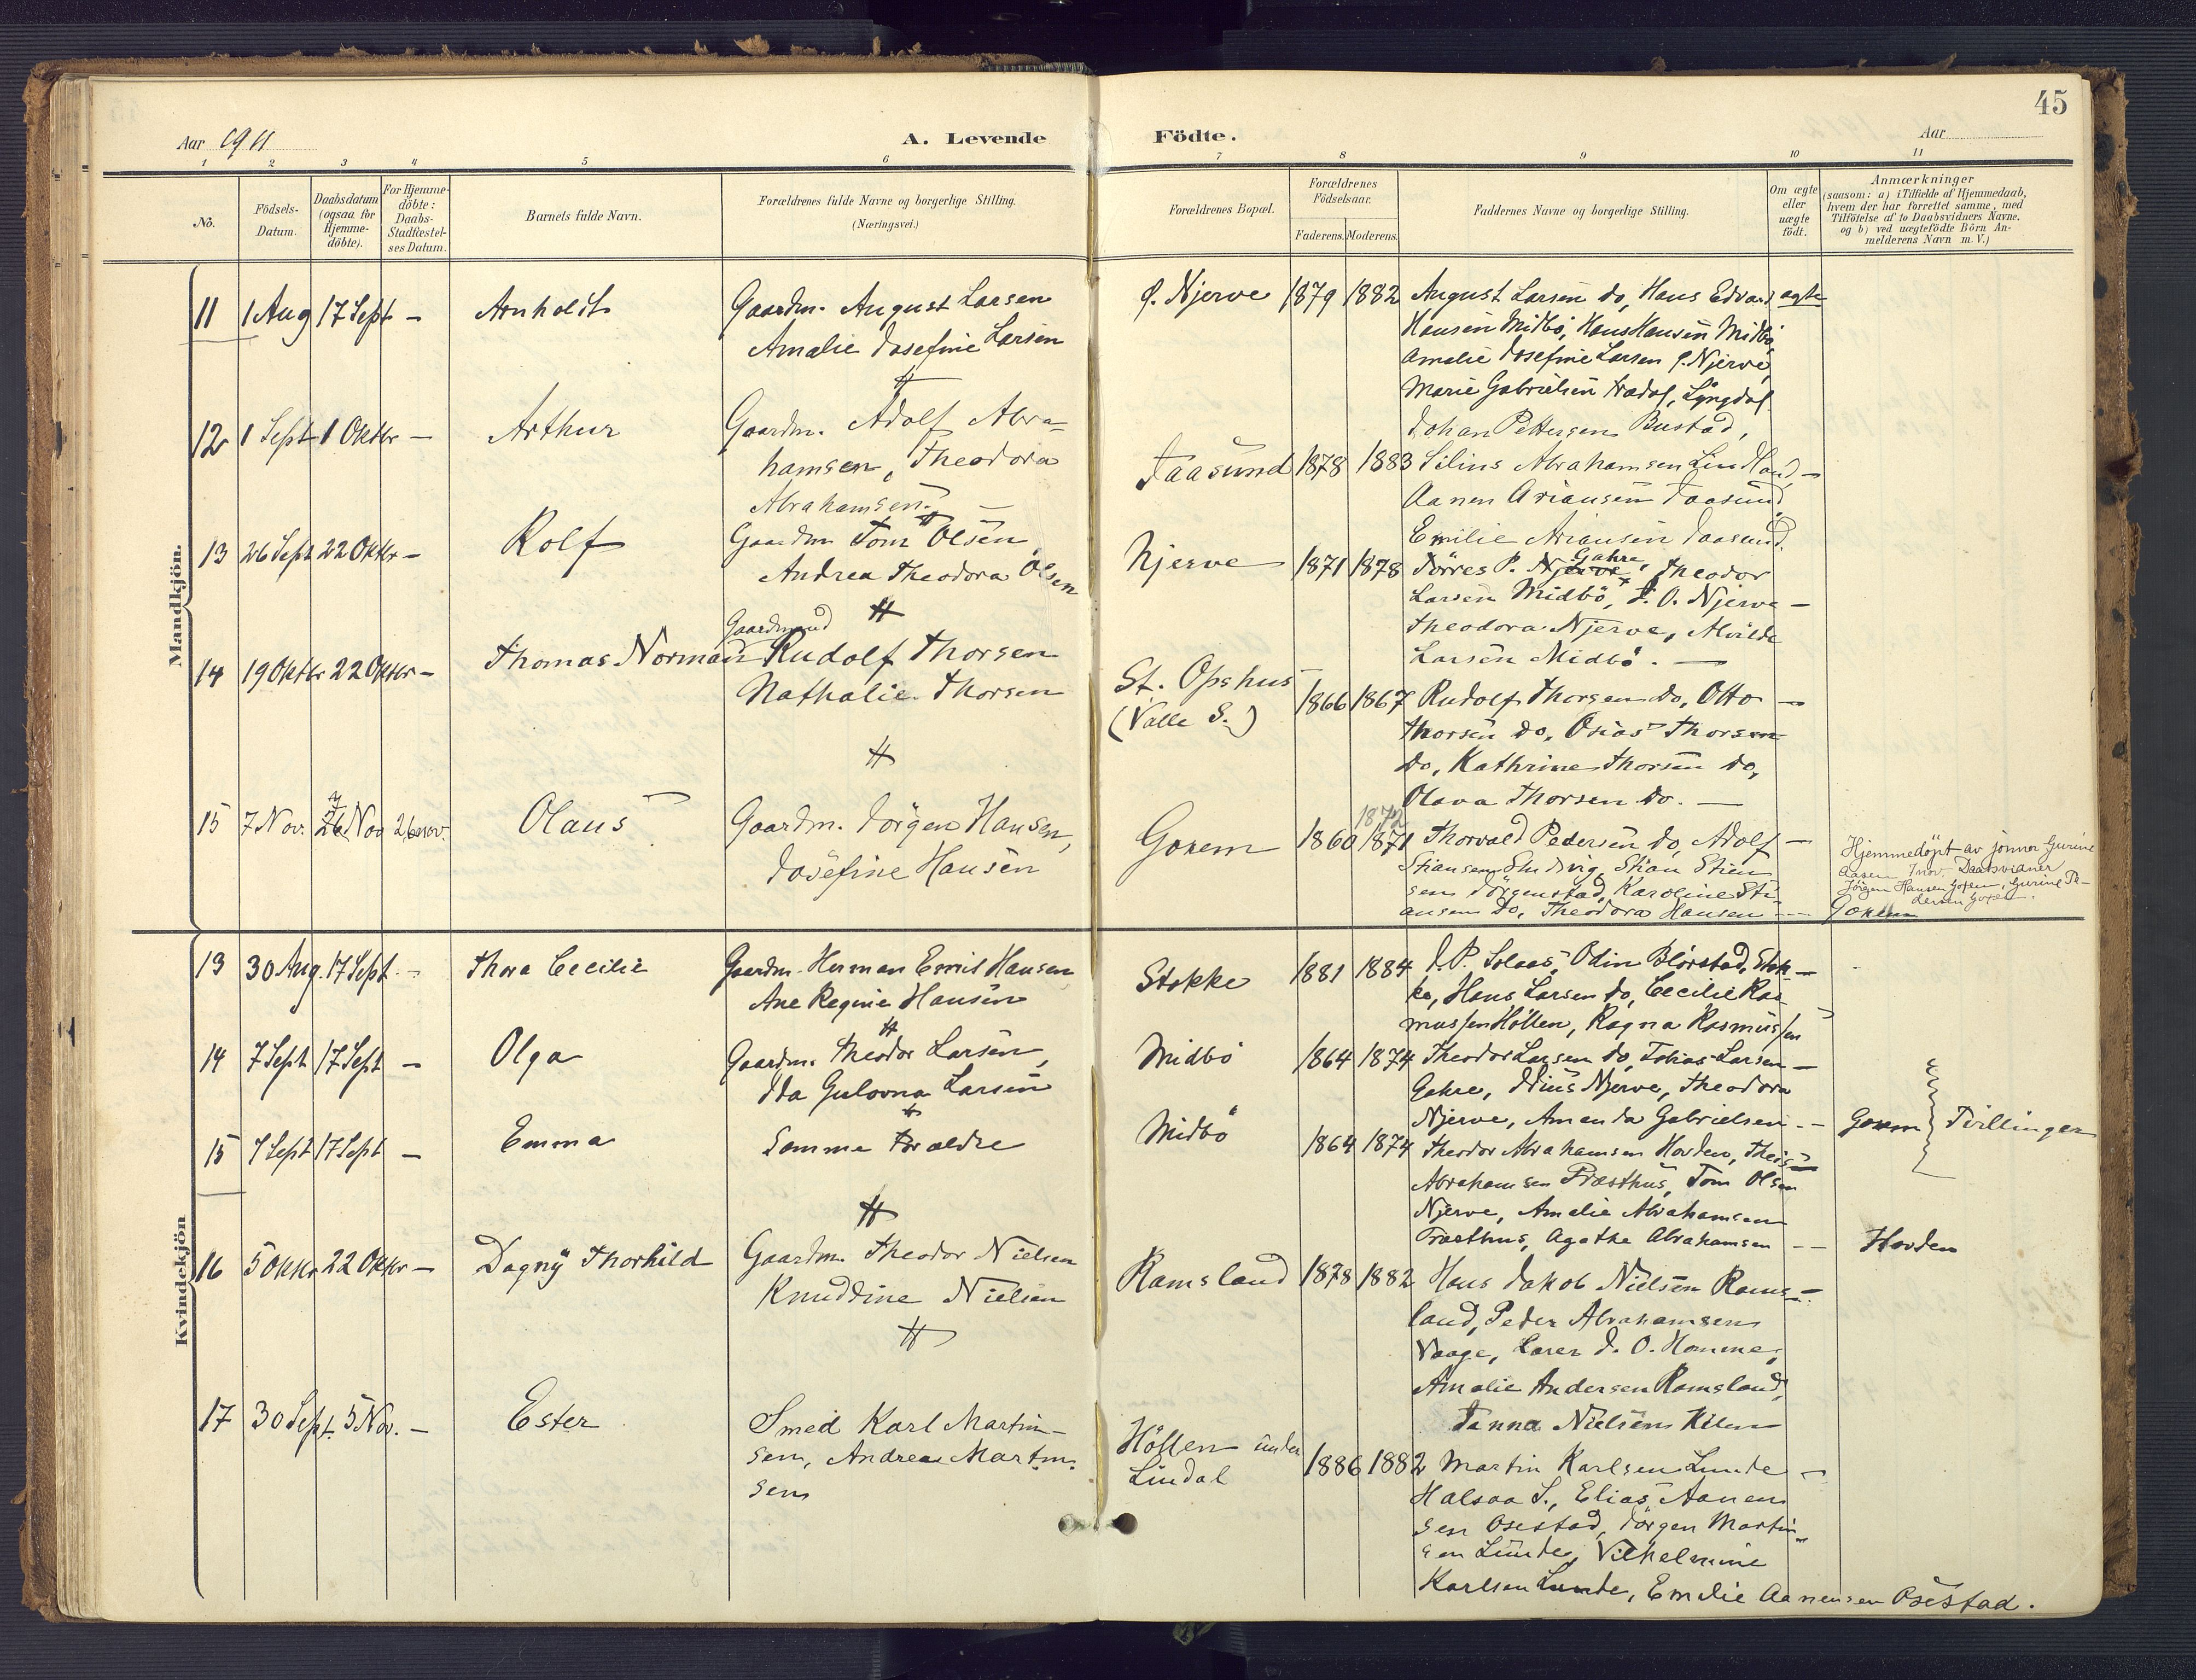 45
Aar 1911
A. Levende
Födte.
Aar
1 2 3 4 5 6 7 8 9 10 11
No.
Födsels-
Datum.
Daabsdatum
(ogsaa for
Hjemme-
döbte).
For Hjemme-
döbte:
Daabs-
Stadfæstel-
ses Datum.
Barnets fulde Navn.
Forældrenes fulde Navne og borgerlige Stilling.
(Næringsvei.)
Forældrenes Bopæl.
Forældrenes
Födselsaar.
Faderens. Moderens.
Faddernes Navne og borgerlige Stilling.
Om ægte
eller
uægte
födt.
Anmærkninger
(saasom: a) i Tilfælde af Hjemmedaab,
hvem der har forrettet samme, med
Tilföielse af to Daabsvidners Navne.
og b) ved uægtefödte Börn An-
melderens Navn m. V.)
Mandkjön.
11 1 Aug 17 Sept – Arnholdt
Gaardm. August Larsen
Amalie Josefine Larsen
Ø. Njerve 1879 1882
August Larsen do, Hans Edvard ægte
Hansen Midbö, Hans Hansen Midbö,
Amalie Josefine Larsen Ø. Njerve,
Marie Gabrielsen Lyngdal
12 1 Sept 1 Oktbr – Arthur
Gaardm. Adolf Abra-
hamsen, Theodora
Abrahamsen. –
Jaasund 1878 1883
Johan Pettersen Bustad,
Silius Abrahamsen Lindland, –
Aanen Ariansen Jaasund,
Emilie Ariansen Jaasund.
13 26 Sept 22 Oktbr – Rolf
Gaardm Tom Olsen,
Andrea Theodora Olsen
Njerve 1871 1878
Törres P. Njerve Gahre, Theodor
Larsen Midbö, T. O. Njerve –
Theodora Njerve, Alvilde
Larsen Midbö. –
14 19 Oktbr 22 Oktbr – Thomas Norman
Gaardmand
Rudolf Thorsen
Nathalie Thorsen
St. Opshus
(Valle S.)
1866 1867
Rudolf Thorsen do, Otto –
Thorsen do, Osias Thorsen
do, Kathrine Thorsen do,
Olava Thorsen do. –
15 7 Nov. 7 26 Nov 26 nov. Olaus
Gaardm. Jörgen Hansen,
Josefine Hansen
Goxem 1860 1872 1871
Thorvald Pedersen do, Adolf –
Stiansen Stian Stian
sen Jörgenstad, Karoline Sti-
ansen do, Theodora Hansen –
Goxem
Hjemmedöpt av jonmor Gurine
Aasen 7 nov. Daabsvidner
Jörgen Hansen Goxem, Gurine Pe-
dersen Goxem.
Kvindekjön
13 30 Aug. 17 Sept. – Thora Cecilie
Gaardm. Herman Emil Hansen
Ane Regine Hansen
Stokke 1881 1884
J. P. Solaas, Odin Blörstad, Stok –
ke, Hans Larsen do, Cecilie Ras
mussen Hölten, Ragna Rasmussen
14 7 Sept 17 Sept – Olga
Gaardm. Theodor Larsen,
Ida Gulovna Larsen
Midbö 1864 1874
Theodor Larsen do, Tobias Larsen –
Gahre, Njerve, Theodora
Njerve, Amanda Gabrielsen. – Goxem
Tvillinger
15 7 Sept 17 Sept – Emma
Samme Foraeldre
Midbö 1864 1874
Theodor Abrahamsen Hovden, Theis –
Abrahamsen Præsthus, Tom Olsen
Njerve, Amalie Abrahamsen
Præsthus, Agathe Abrahamsen – – Hovden
16 5 Oktbr 22 Oktbr – Dagny Thorhild
Gaardm. Theodor Nielsen
Knuddine Nielsen
Ramsland 1878 1882
Hans Jakob Nielsen Rams –
land, Peder Abrahamsen
Vaage, Lærer J. O. Homme,
Amalie Andersen Ramsland,
Janna Nielsen Kilen
17 30 Sept. 5 Nov. – Ester
Smed Karl Martin-
sen, Andrea Martin-
sen
Höllen under
Lindal
1886 1882
Martin Karlsen Lunde –
Halsaa S., Elias Aanen
sen Osestad, Jörgen Martin-
sen Lunde, Vilhelmine
Karlsen Lunde, Emelie Aanensen Osestad.